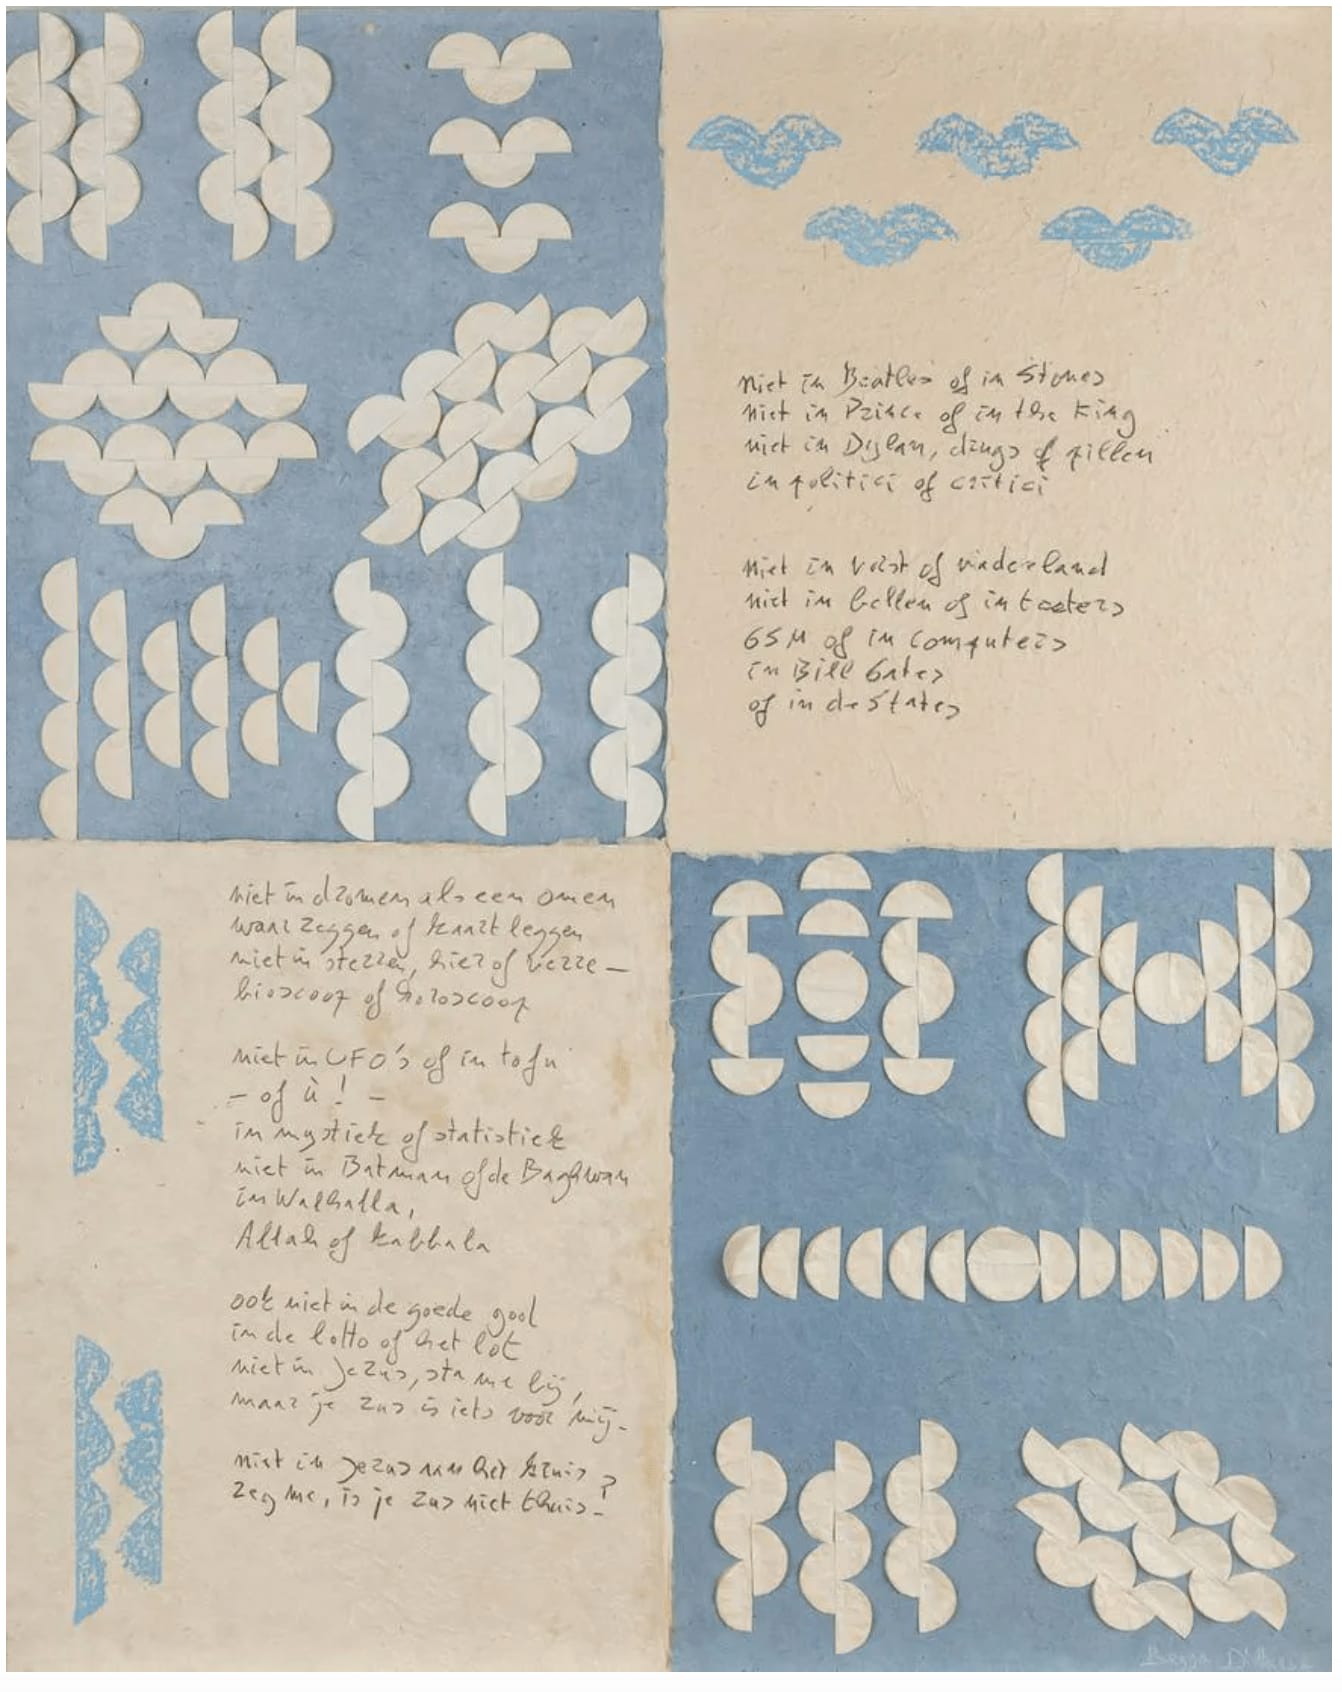 niet in Beatles of in Stones
niet in Prince of in the King
niet in Dylan, drugs of pillen
in politici of critici
niet in vorst of vaderland
niet in bellen of in toeters
GSM of in computers
in Bill Gates
of in de States
niet in dromen als een omen
waarzeggen of kaartleggen
niet in sterren, hier of verre —
bioscoop of horoscoop
niet in UFO's of in tofu
— of ù! —
in mystiek of statistiek
niet in Batman of de Baghwan
in Walhalla,
Allah of kabbala
ook niet in de goede god
in de lotto of het lot
niet in Jezus, sta me bij,
maar je zus is iets voor mij.
niet in Jezus aan het kruis?
zeg me, is je zus niet thuis?
Begga D'Haese